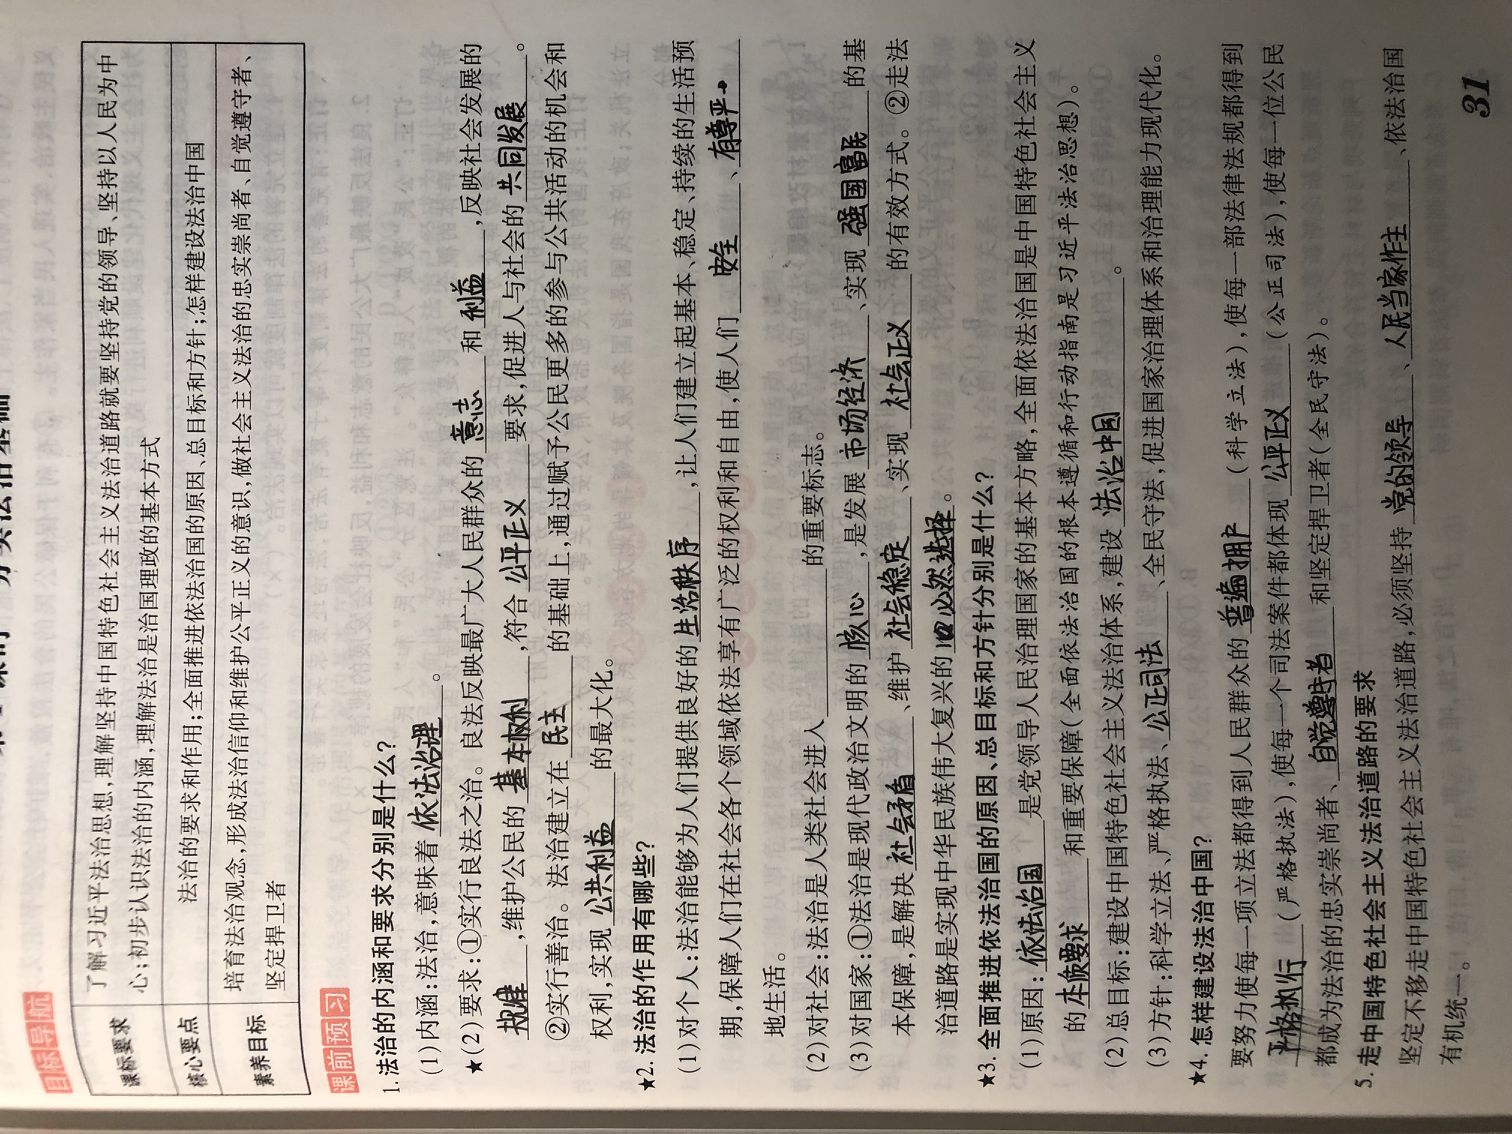 目标导航
课标要求 了解习近平法治思想,理解坚持中国特色社会主义法治道路就要坚持党的领导、坚持以人民为中
心;初步认识法治的内涵,理解法治是治国理政的基本方式
核心要点 法治的要求和作用;全面推进依法治国的原因、总目标和方针;怎样建设法治中国
素养目标 培育法治观念,形成法治信仰和维护公平正义的意识,做社会主义法治的忠实崇尚者、自觉遵守者、
坚定捍卫者
课前预习
1.法治的内涵和要求分别是什么?
(1)内涵:法治,意味着 依法治理 。
★(2)要求:①实行良法之治。良法反映最广大人民群众的 意志 和 利益 ,反映社会发展的
规律 ,维护公民的 基本权利 ,符合 公平正义 要求,促进人与社会的 共同发展 。
②实行善治。法治建立在 民主 的基础上,通过赋予公民更多的参与公共活动的机会和
权利,实现 公共利益 的最大化。
★2.法治的作用有哪些?
(1)对个人:法治能够为人们提供良好的 生活秩序 ,让人们建立起基本、稳定、持续的生活预
期,保障人们在社会各个领域依法享有广泛的权利和自由,使人们 安全 、有尊严
地生活。
(2)对社会:法治是人类社会进入 的重要标志。
(3)对国家:①法治是现代政治文明的 核心 ,是发展 市场经济 、实现 强国富民 的基
本保障,是解决 社会矛盾 、维护 社会稳定 、实现 社会正义 的有效方式。②走法
治道路是实现中华民族伟大复兴的 必然选择 。
★3.全面推进依法治国的原因、总目标和方针分别是什么?
(1)原因: 依法治国 是党领导人民治理国家的基本方略,全面依法治国是中国特色社会主义
的 本质要求 和重要保障(全面依法治国的根本遵循和行动指南是习近平法治思想)。
(2)总目标:建设中国特色社会主义法治体系,建设 法治中国 。
(3)方针:科学立法、严格执法、 公正司法 、全民守法,促进国家治理体系和治理能力现代化。
★4.怎样建设法治中国?
要努力使每一项立法都得到人民群众的 普遍拥户 (科学立法),使每一部法律法规都得到
严格执行 (严格执法),使每一个司法案件都体现 公平正义 (公正司法),使每一位公民
都成为法治的忠实崇尚者、 自觉遵守者 和坚定捍卫者(全民守法)。
5.走中国特色社会主义法治道路的要求
坚定不移走中国特色社会主义法治道路,必须坚持 党的领导 、 人民当家作主 、依法治国
有机统一。
31